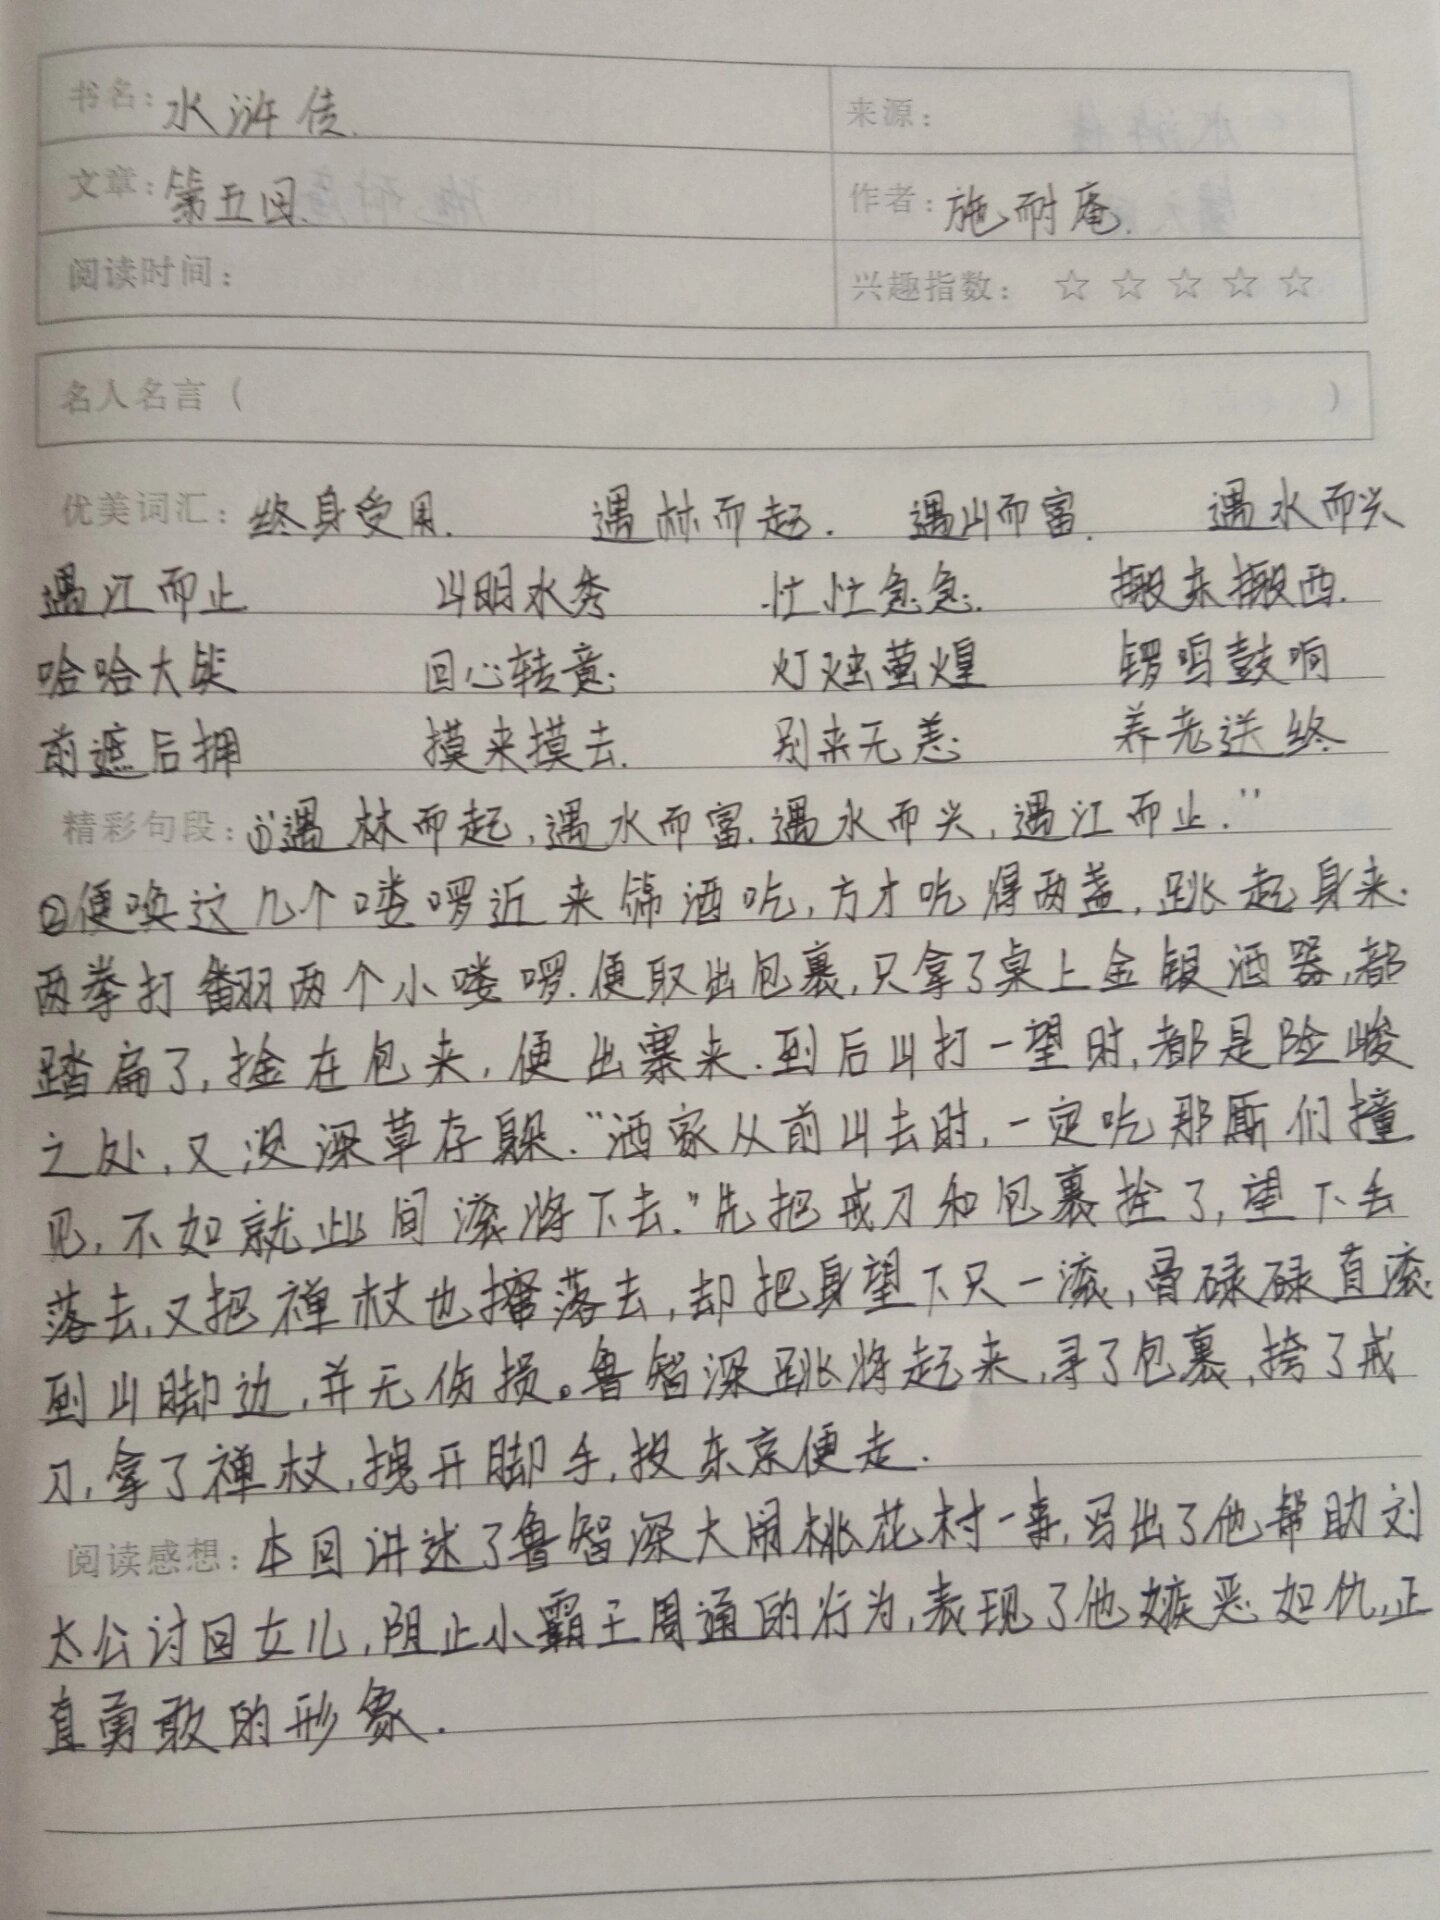 书名：水浒传.
来源：
文章：第五回.
作者：施耐庵.
阅读时间：
兴趣指数：☆☆☆☆☆
名人名言（ ）
优美词汇：终身受用. 遇林而起. 遇山而富. 遇水而兴
遇江而止 山明水秀 忙忙急急. 搬东搬西.
哈哈大笑 回心转意. 灯烛萤煌 锣鸣鼓响
前遮后拥 摸来摸去. 别来无恙. 养老送终
精彩句段：①“遇林而起，遇水而富.遇水而兴，遇江而止.”
②便唤这几个喽啰近来筛酒吃，方才吃得两盏，跳起身来.
两拳打翻两个小喽啰.便取出包裹，只拿了桌上金银酒器，都
踏扁了，拴在包来，便出寨来.到后山打一望时，都是险峻
之处，又没深草存躲.“洒家从前山去时，一定吃那厮们撞
见，不如就此间滚将下去.”先把戒刀和包裹拴了，望下去
落去，又把禅杖也撺落去，却把身望下只一滚，骨碌碌直滚
到山脚边，并无伤损。鲁智深跳将起来，寻了包裹，挎了戒
刀，拿了禅杖，拽开脚手，投东京便走.
阅读感想：本回讲述了鲁智深大闹桃花村一事，写出了他帮助刘
太公讨回女儿，阻止小霸王周通的行为，表现了他嫉恶如仇，正
直勇敢的形象.